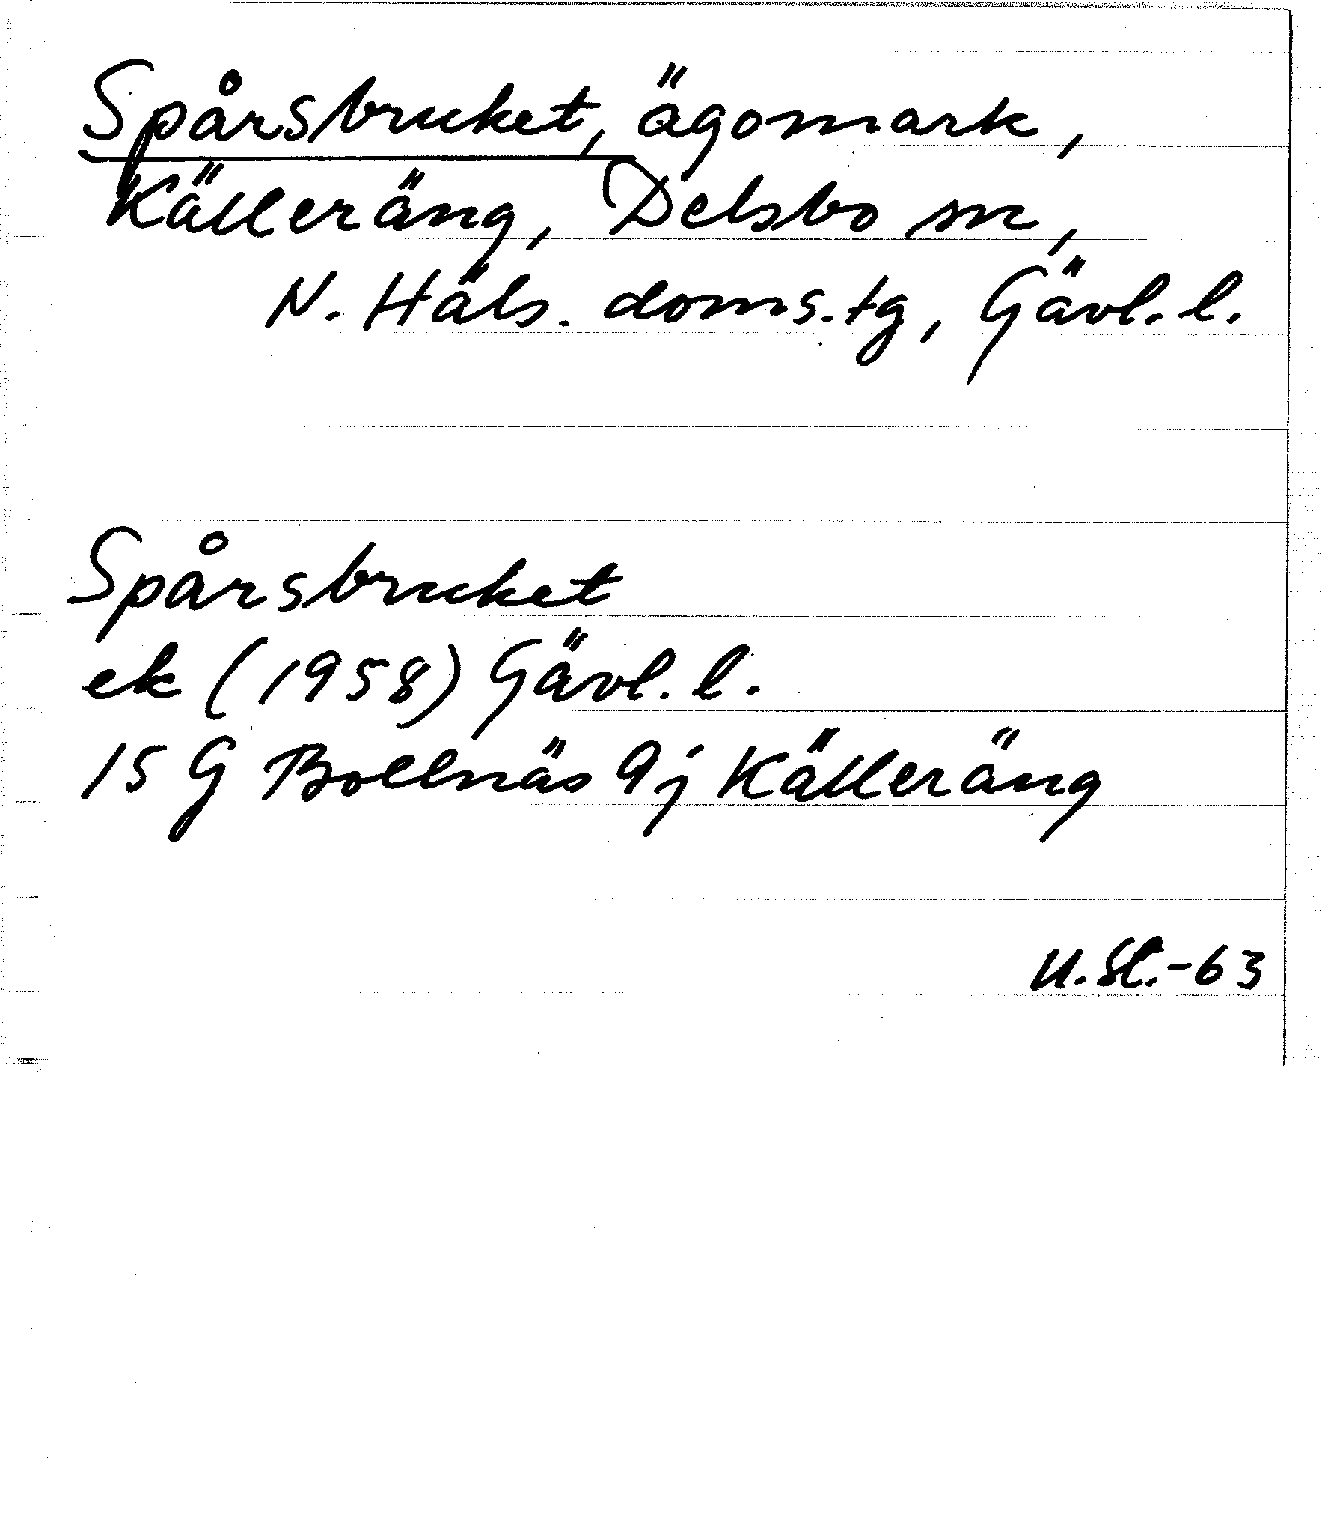 Spårsbruket, ägomark,
Källeräng, Delsbo sn,
N. Häls. doms.tg, Gävl. l.
Spårsbruket
ek (1958) Gävl. l.
15 G Bollnäs 9j Källeräng
U.Sl.-63